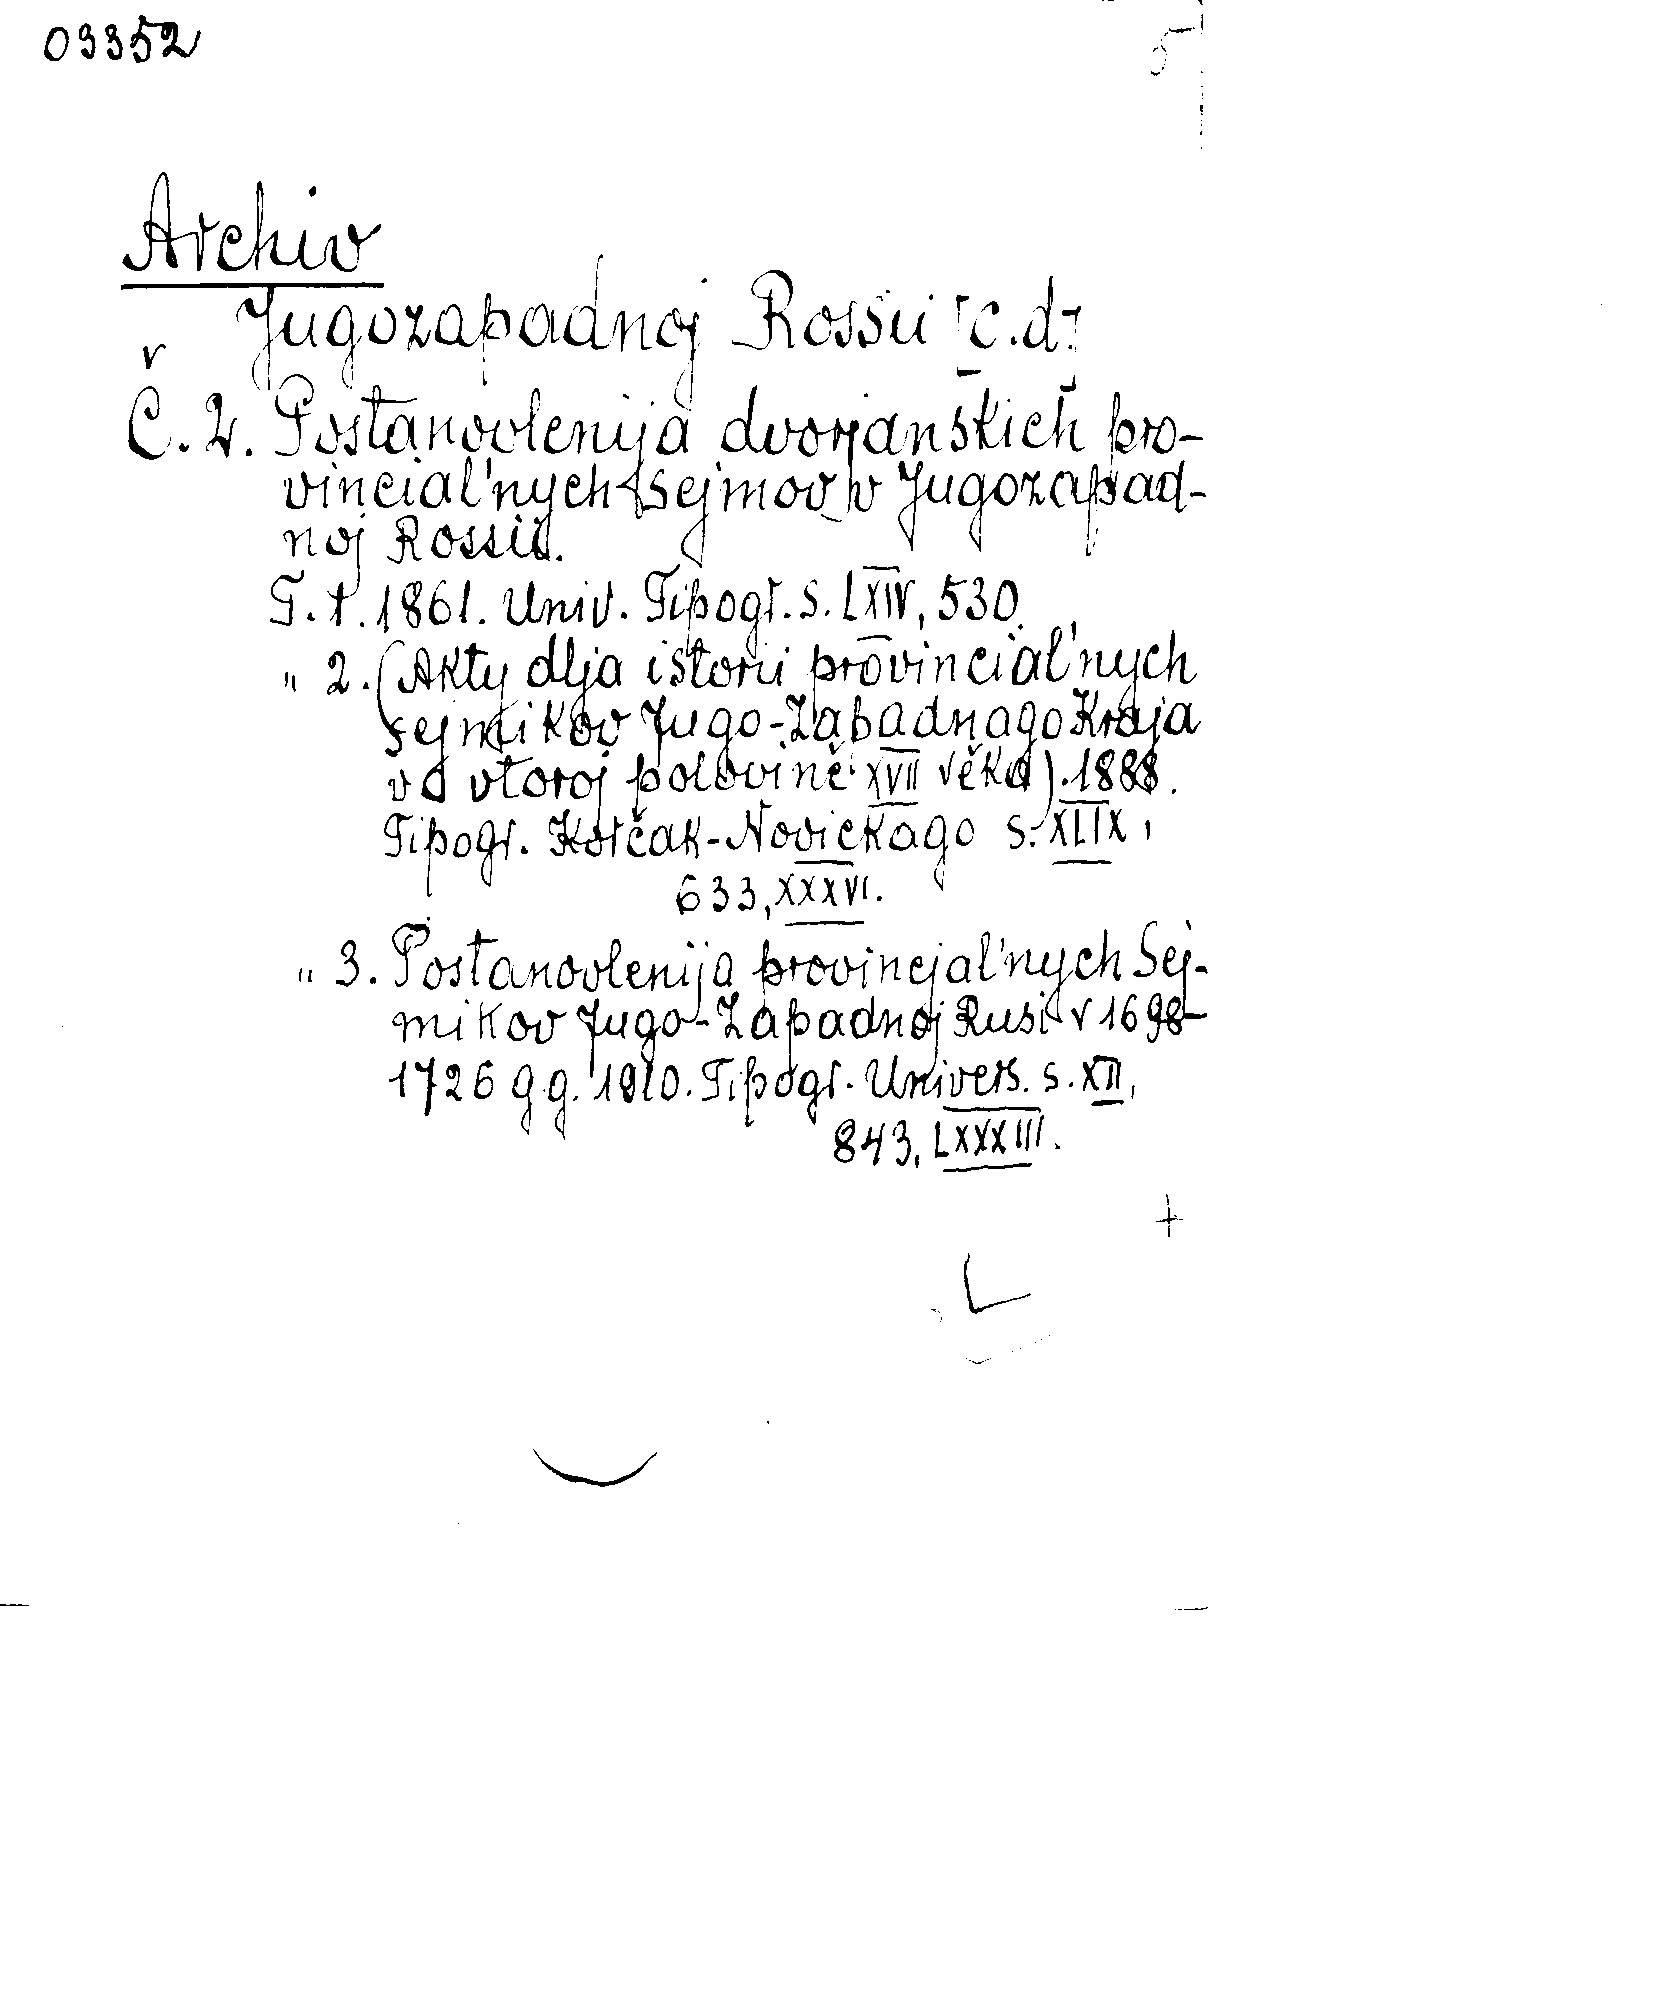 03352
5
Archiv
Jugozapadnoj Rossii [c.d.]
Č. 2. Postanovlenija dvorjanskich pro-
vincial'nych sejmov v Jugozapad-
noj Rossii.
T. 1. 1861. Univ. Tipogr. s. LXIV, 530.
" 2. (Akty dlja istorii provincial'nych
sejmikov Jugo-Zapadnago Kraja
vo vtoroj polovině XVII věka). 1888.
Tipogr. Korčak-Novickago s. XLIX,
633, XXXVI.
" 3. Postanovlenija provincjal'nych Sej-
mikov Jugo-Zapadnoj Rusi v 1698-
1726 gg. 1910. Tipogr. Univers. s. XII,
843, LXXXIII.